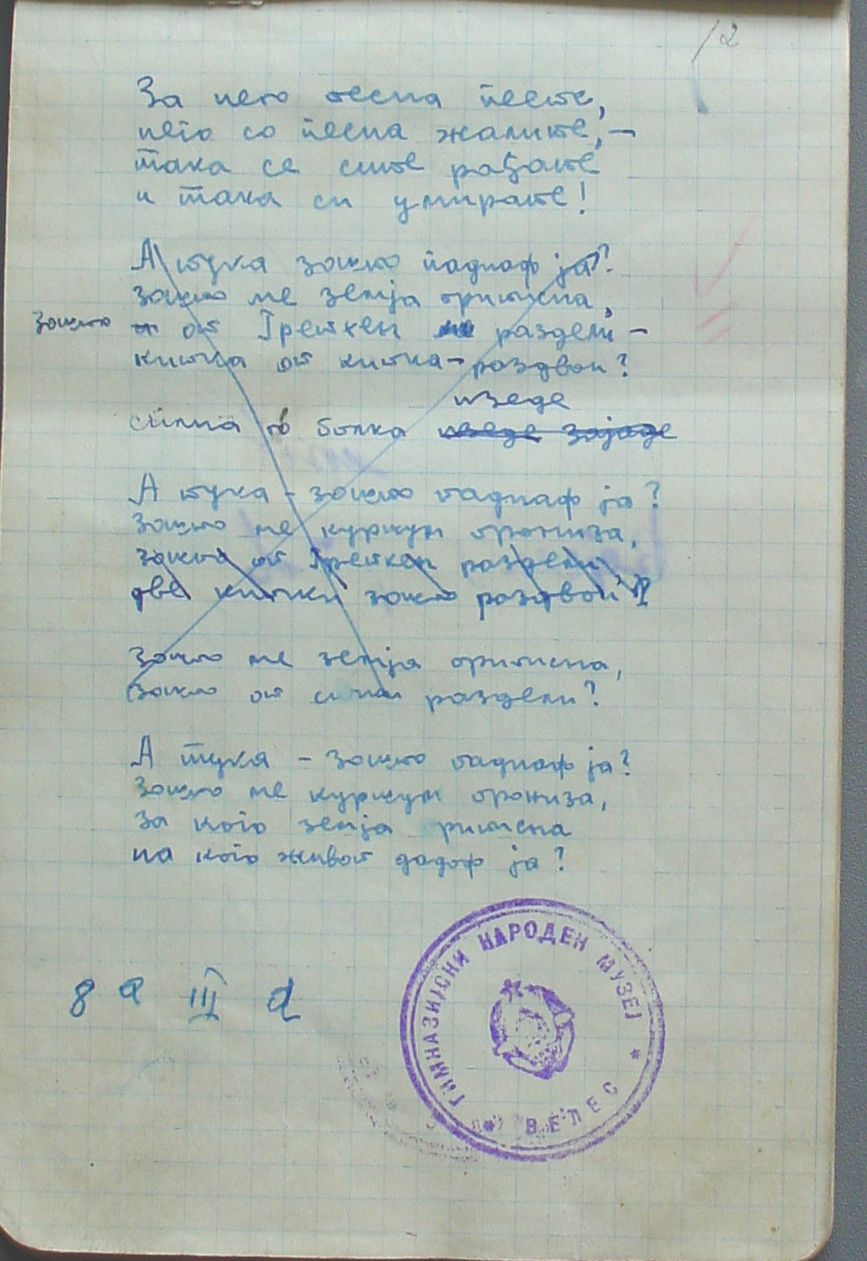 12
За него песна пеете,
него со песна жалите,—
така се сите раѓате
и така си умирате!
А тука зошто паднаф ја?
зошто ме земја притисна,
зошто от Гретхен раздели —
китка от китка – раздвои?
изеде
силна болка изеде зајаде
А тука – зошто паднаф ја?
Зошто ме куршум прониза,
зошто от Гретхен раздели
две китки зошто раздвои?
Зошто ме земја притисна,
Зошто от раздели?
А тука – зошто паднаф ја?
Зошто ме куршум прониза,
за кого земја притисна
на кого живот дадоф ја?
8 а III
ГИМНАЗИЈСКИ НАРОДЕН МУЗЕЈ
* ВЕЛЕС *